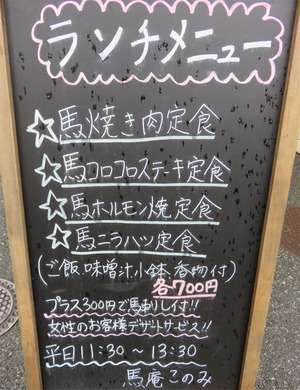 ランチメニュー
☆馬焼き肉定食
☆馬コロコロステーキ定食
☆馬ホルモン焼定食
☆馬ニラハツ定食
(ご飯、味噌汁、小鉢、香物付)
各700円
プラス300円で馬刺し付!!
女性のお客様デザートサービス!!
平日11:30~13:30
馬庵このみ